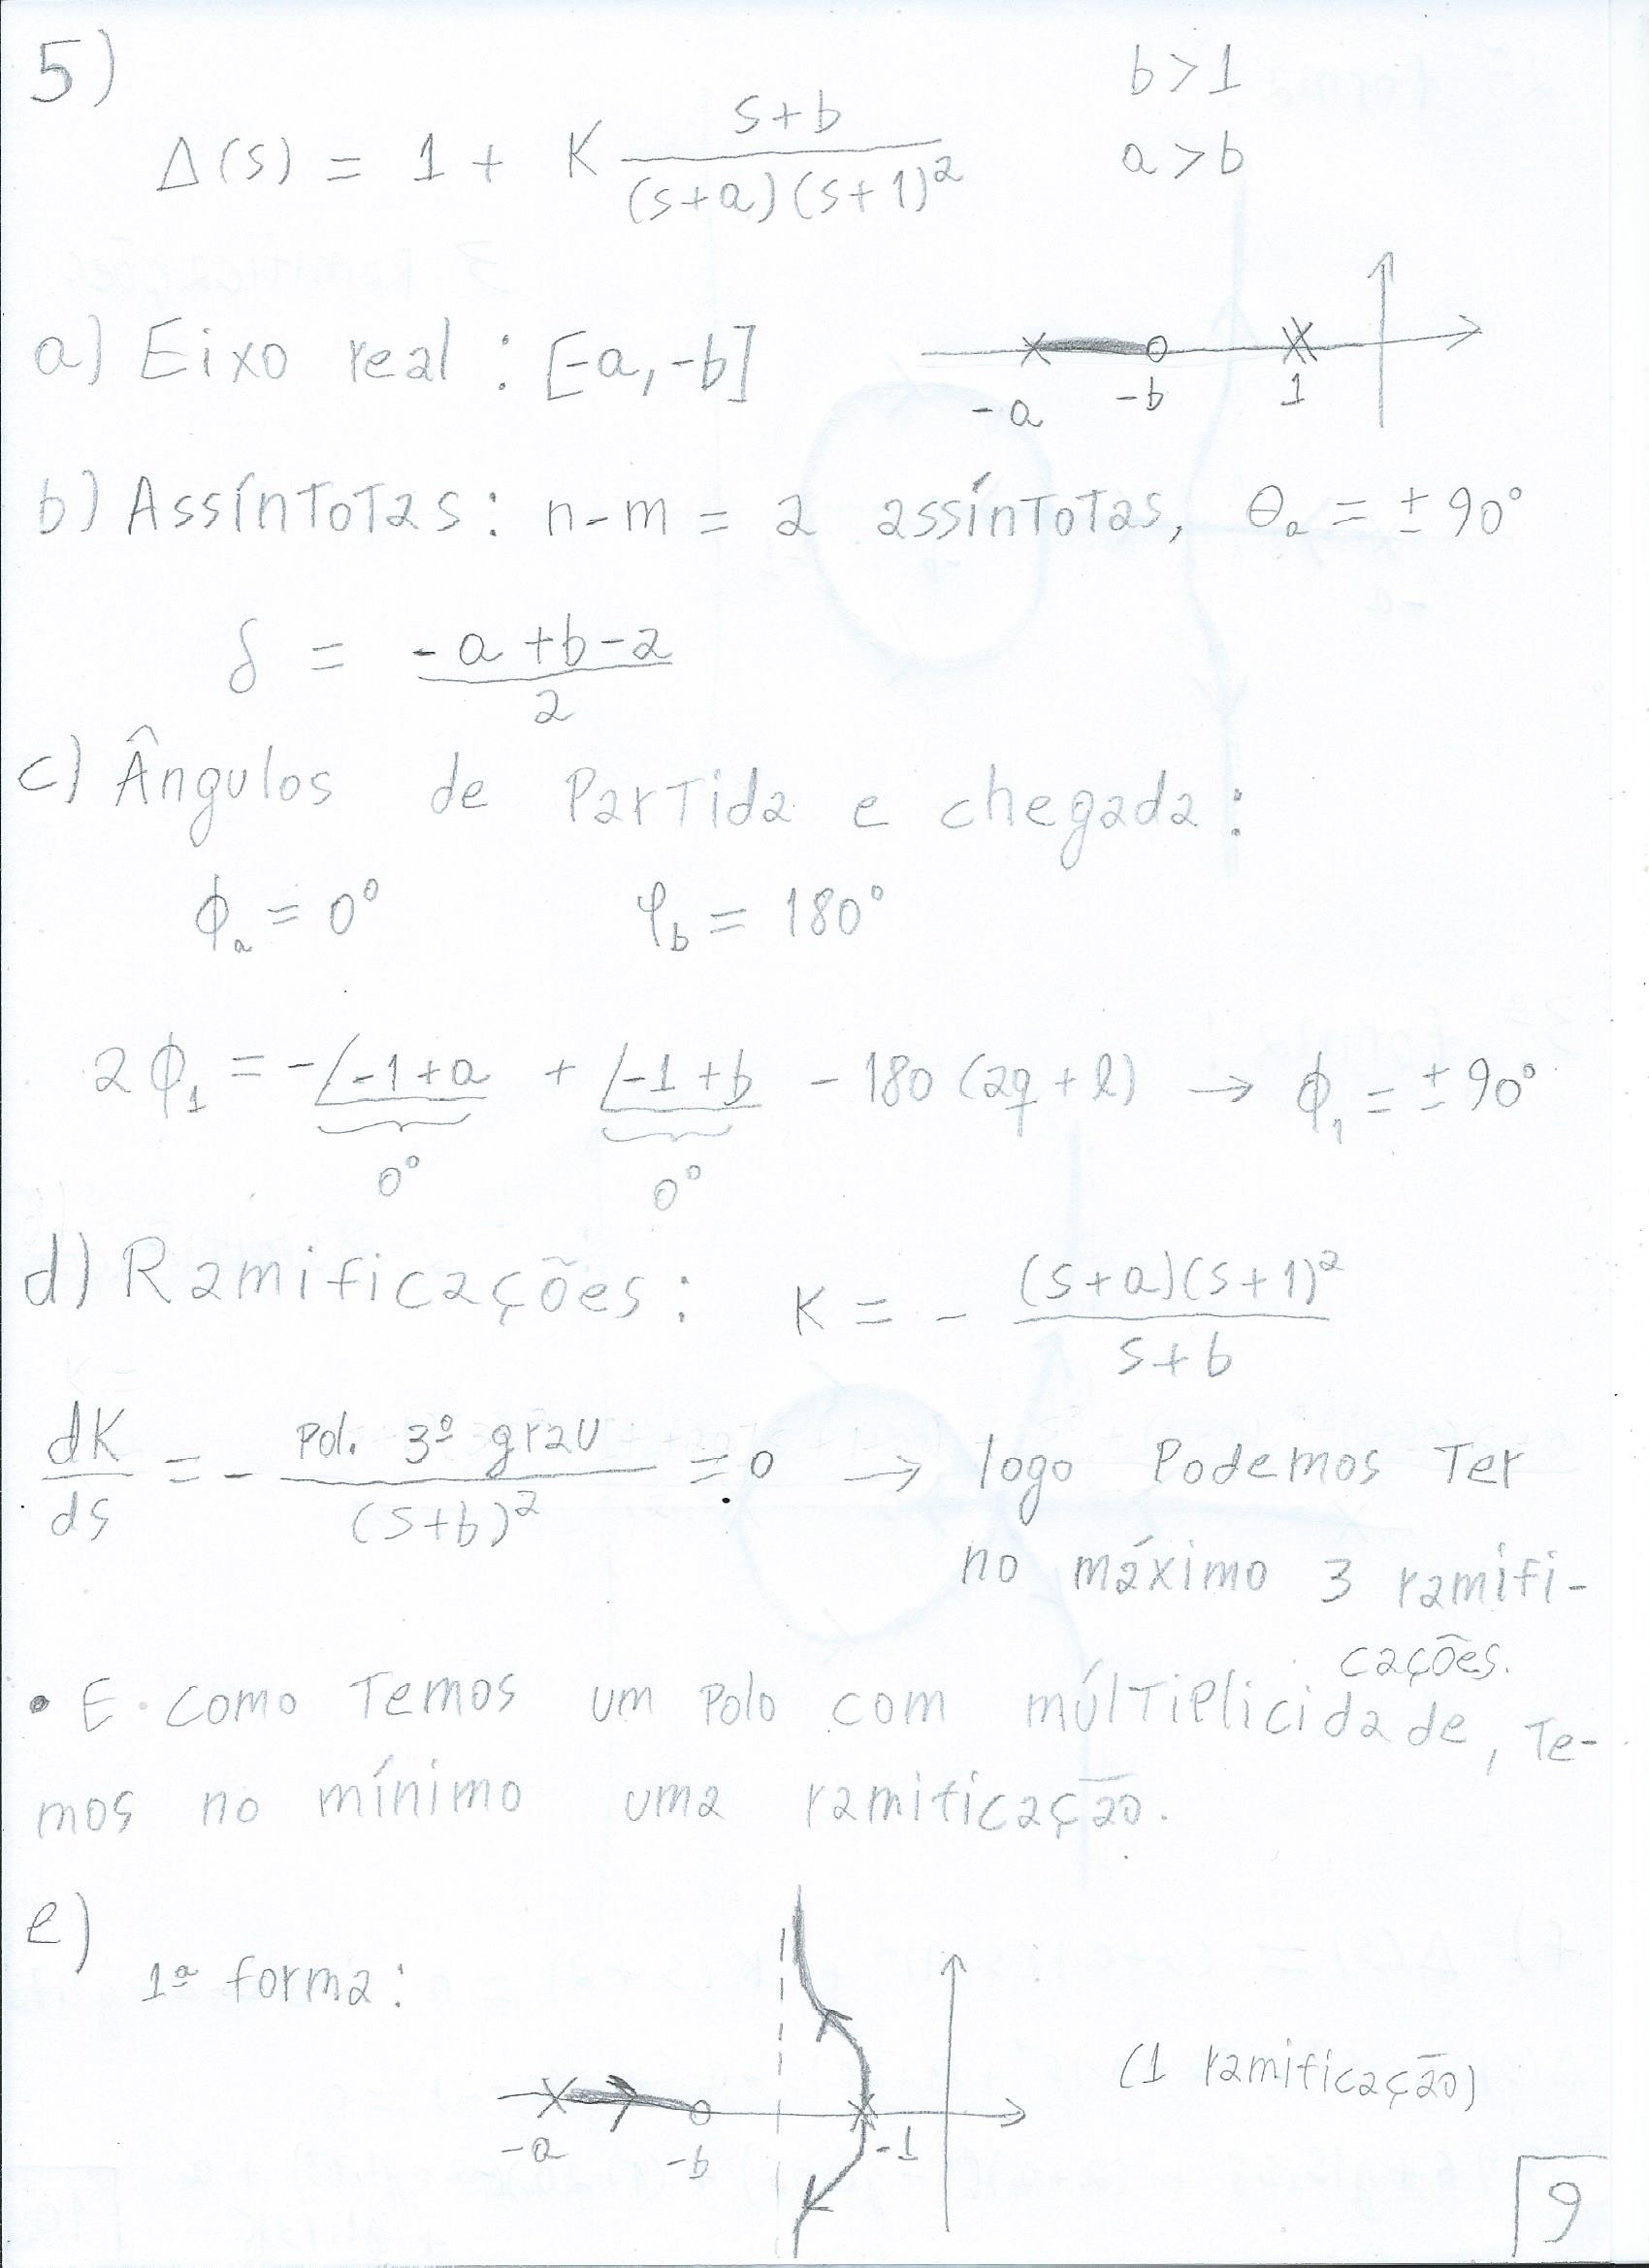 5)
b>1
Δ(s) = 1 + K (s+b)/((s+a)(s+1)²)
a>b
a) Eixo real : [-a,-b]
-a -b 1
b) Assíntotas: n-m = 2 assíntotas, θₐ = ±90°
δ = (-a+b-2)/2
c) Ângulos de Partida e chegada:
ϕₐ = 0° φ_b = 180°
2ϕ₁ = -∠-1+a + ∠-1+b - 180(2q+l) → ϕ₁ = ±90°
0° 0°
d) Ramificações: K = - ((s+a)(s+1)²)/(s+b)
dK/ds = - (Pol. 3º grau)/((s+b)²) = 0 → logo Podemos Ter
no máximo 3 ramifi-
cações.
• E como Temos um Polo com múltiplicidade, Te-
mos no mínimo uma ramificação.
e)
1ª forma:
(1 ramificação)
-a -b -1
9